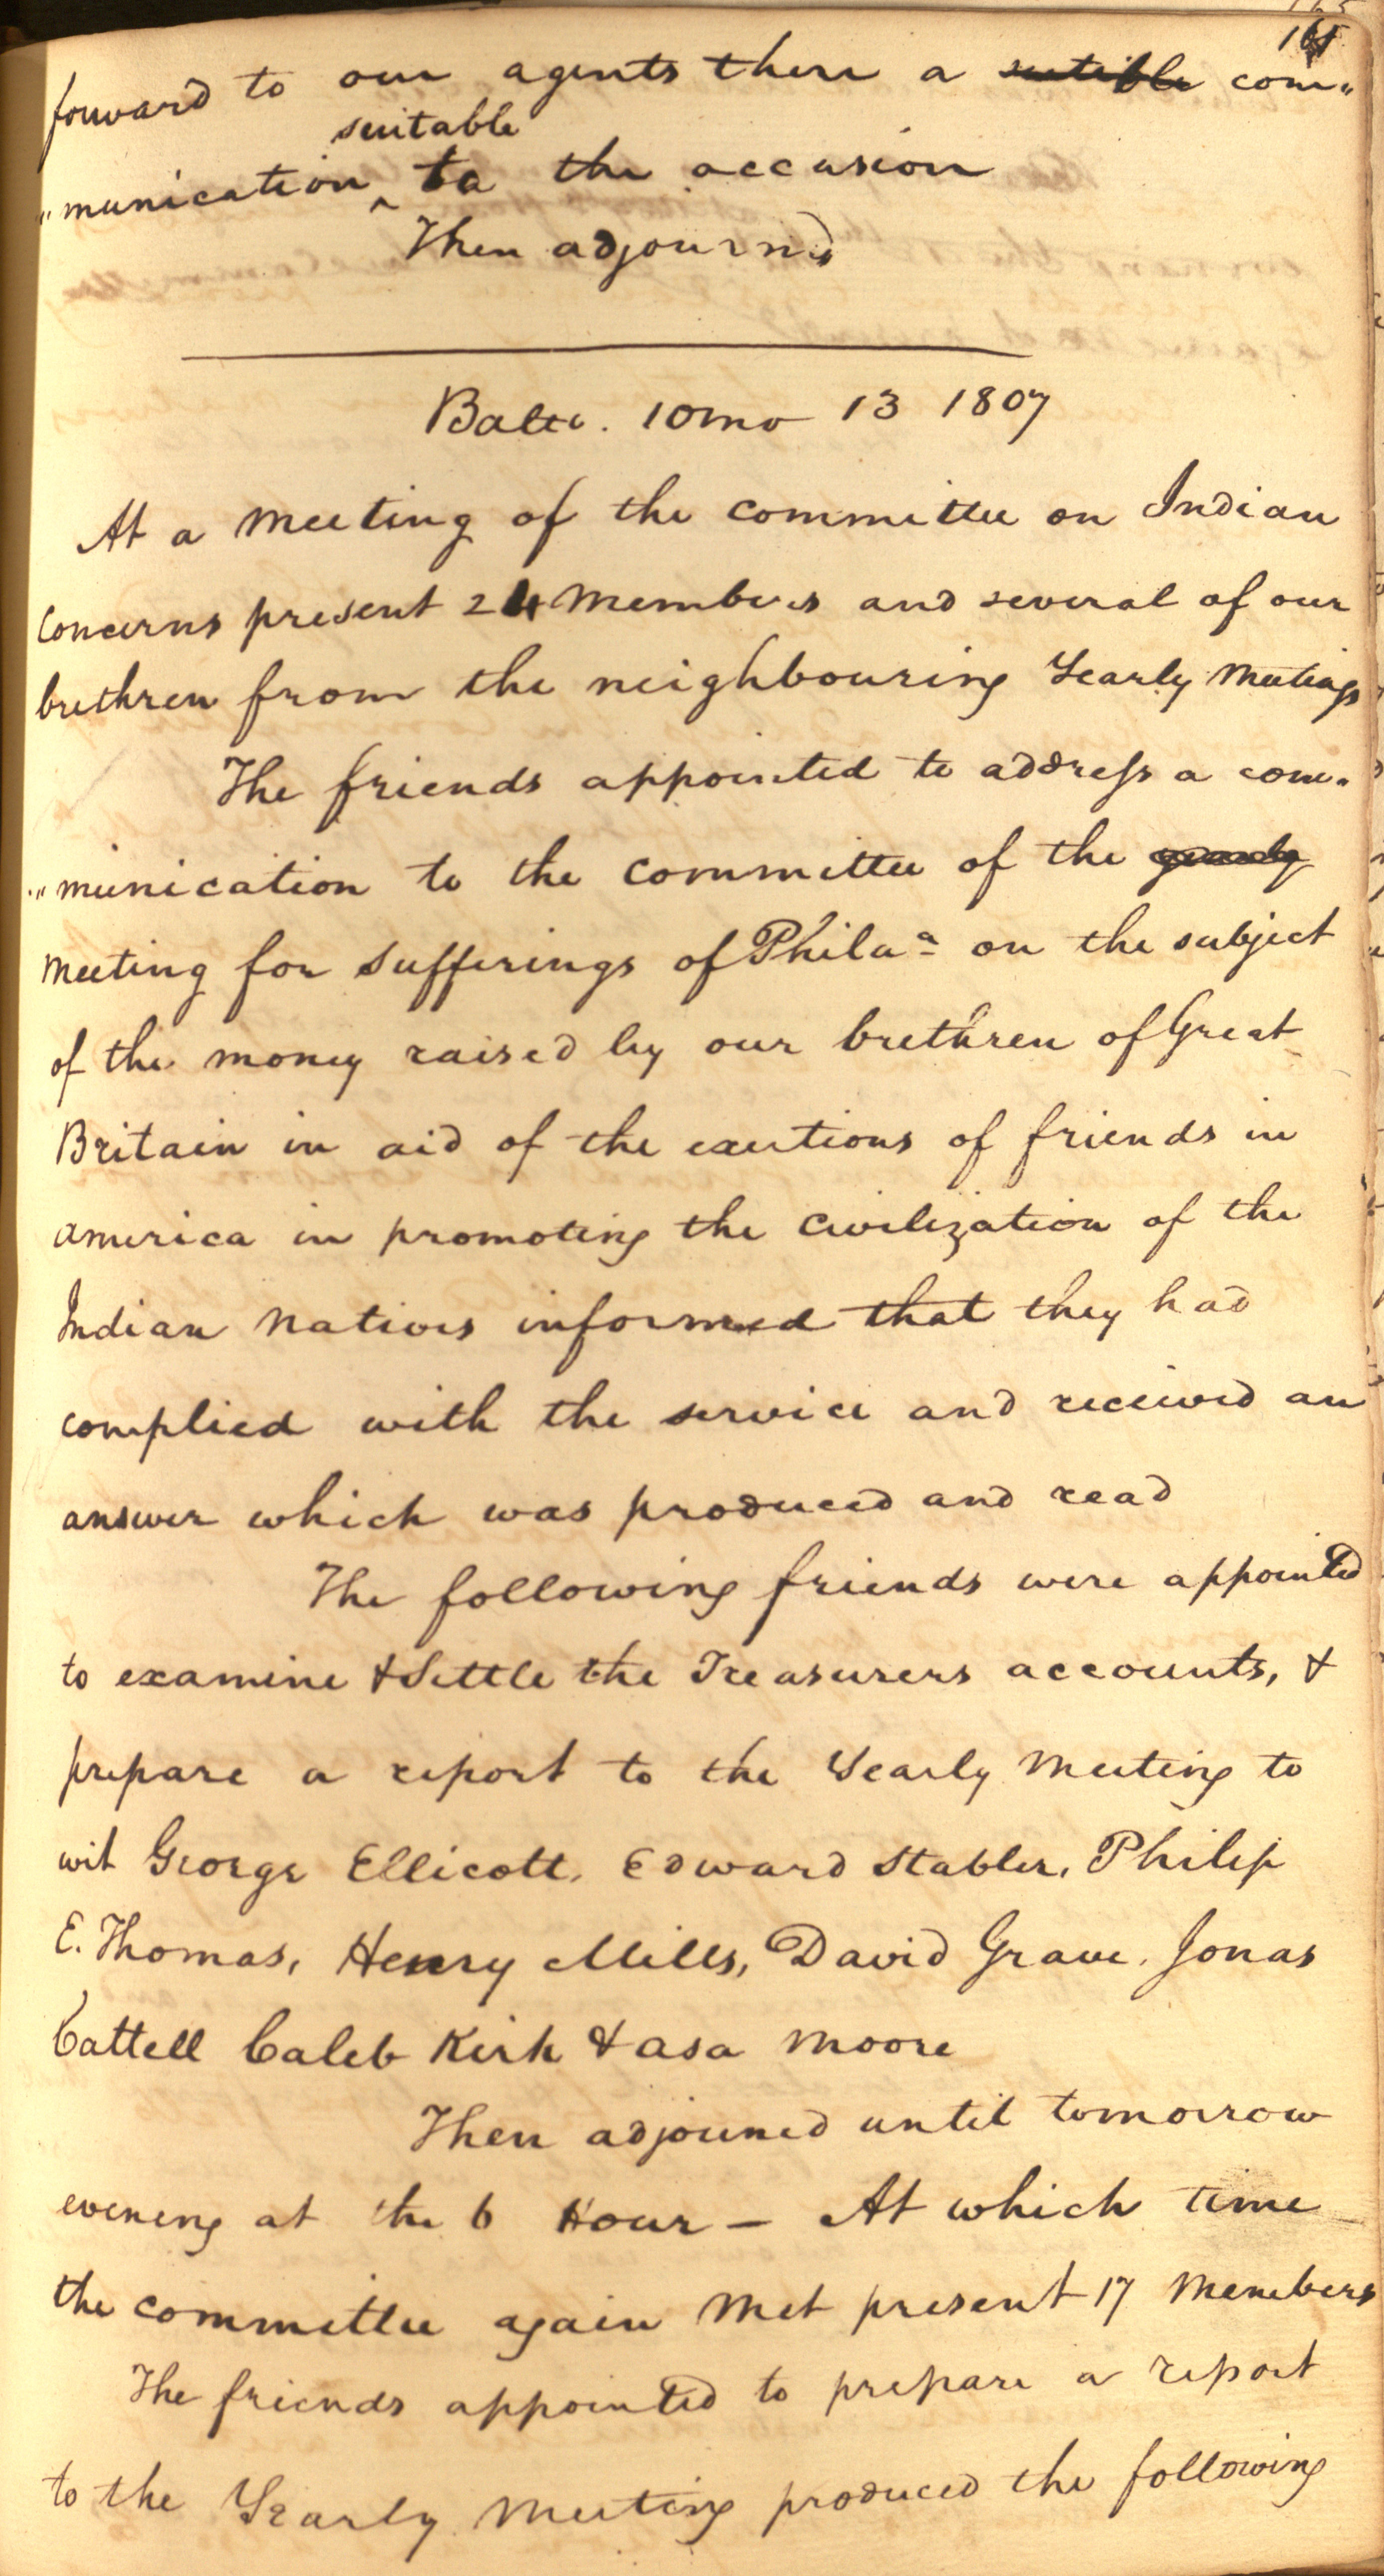 165
forward to our agents there a suitable com"
"munication suitable to the occasion
Then adjourn'd
Balto. 10mo 13 1807
At a meeting of the committee on Indian
Concerns present 24 Members and several of our
brethren from the neighbouring Yearly Meetings
The friends appointed to address a com"
"munication to the Committee of the yearly
Meeting for Sufferings of Phila on the subject
of the money raised by our brethren of Great
Britain in aid of the exertions of friends in
America in promoting the Civilization of the
Indian Natives informed that they had
complied with the service and received an
answer which was produced and read
The following friends were appointed
to examine & Settle the Treasurers accounts, &
prepare a report to the Yearly Meeting to
wit George Ellicott, Edward Stabler, Philip
E. Thomas, Henry Mills, David Grave, Jonas
Cattell Caleb Kirk & Asa Moore
Then adjouned until tomorrow
evening at the 6 Hour — At which time
the committee again Met present 17 Members
The friends appointed to prepare a report
to the Yearly Meeting produced the following